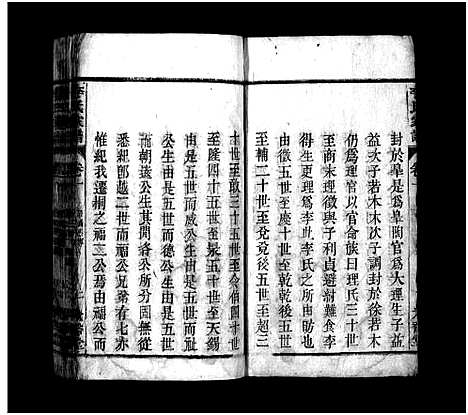 封於皋是爲皋陶官爲大理生子益
益次子若木木次子調封於徐若木
仍爲理官以官命族曰理氏三十世
至商末理徵與子利貞避紂難食李
得生理更爲李此李氏之所由昉也
由徵五世至慶十世至乾乾後五世
至輔二十世至兌兌後五世至超三
十世至敢三十五世至
至隆四十五世至泉五十世至天錫
由是五世而威公生由是五世而祉
公生由是五世而德公生由是五世
而朝遠公生其閒各公所分固無從
悉紀卽越二世而福公兄弟有七亦
惟紀我遷桐之福三公焉由福公而
李氏宗譜
卷一